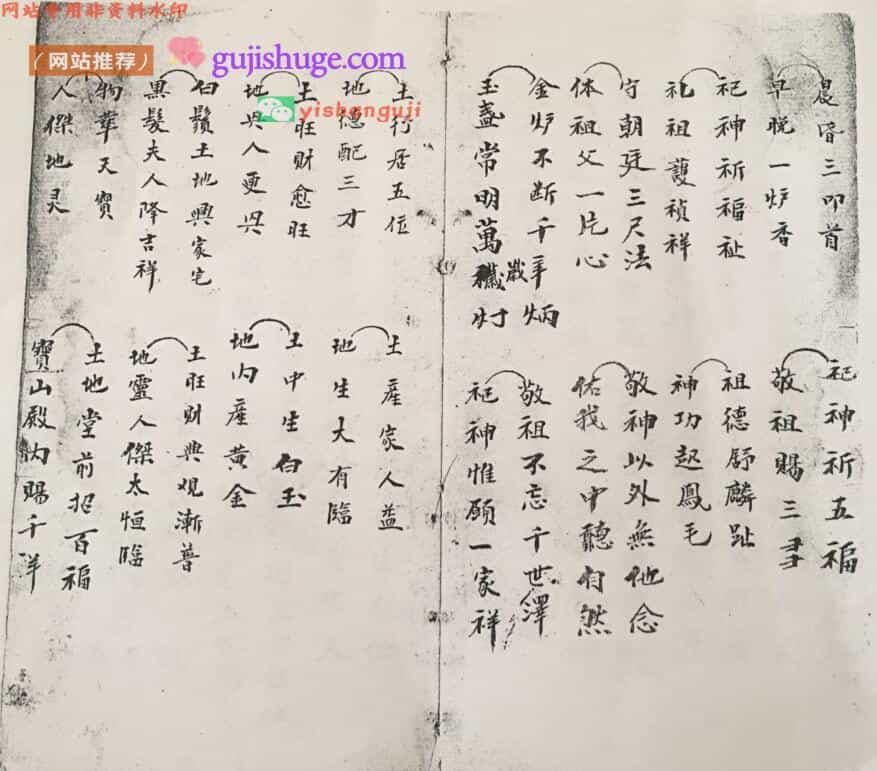 网站专用非资料水印
（网站推荐）
gujishuge.com
yishanguji
晨昏三叩首
早晚一炉香
祀神祈福祉
礼祖護禎祥
守朝廷三尺法
体祖父一片心
金炉不断千年炳
玉盏常明萬歲灯
祀神祈五福
敬祖賜三多
祖德舒麟趾
神功起鳳毛
敬神以外無他念
佑我之中聽自然
敬祖不忘千世澤
祀神惟願一家祥
土行居五位
地德配三才
土旺财愈旺
地兴人更兴
白鬚土地興家宅
黑髮夫人降吉祥
物華天寶
人傑地灵
土產家人益
地生大有臨
土中生白玉
地内產黄金
土旺财興观漸普
地靈人傑太恒臨
土地堂前招百福
寶山殿内賜千祥